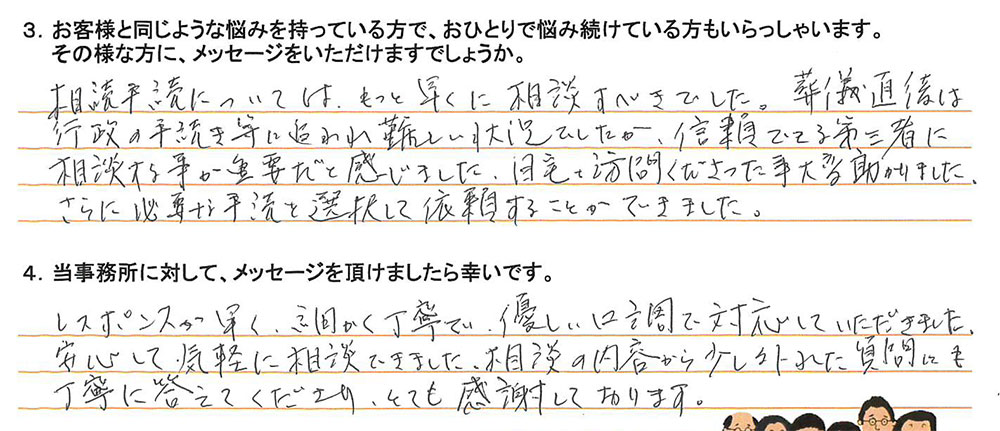 3．お客様と同じような悩みを持っている方で、おひとりで悩み続けている方もいらっしゃいます。
その様な方に、メッセージをいただけますでしょうか。
相続手続については、もっと早くに相談すべきでした。葬儀直後は
行政の手続き等に追われ難しい状況でしたが、信頼できる第三者に
相談する事が重要だと感じました、自宅を訪問くださった事大変助かりました、
さらに必要な手続を選択して依頼することができました。
4．当事務所に対して、メッセージを頂けましたら幸いです。
レスポンスが早く、細かく丁寧で、優しい口調で対応していただきました、
安心して気軽に相談できました、相談の内容から少し外れた質問にも
丁寧に答えてくださり、とても感謝しております。